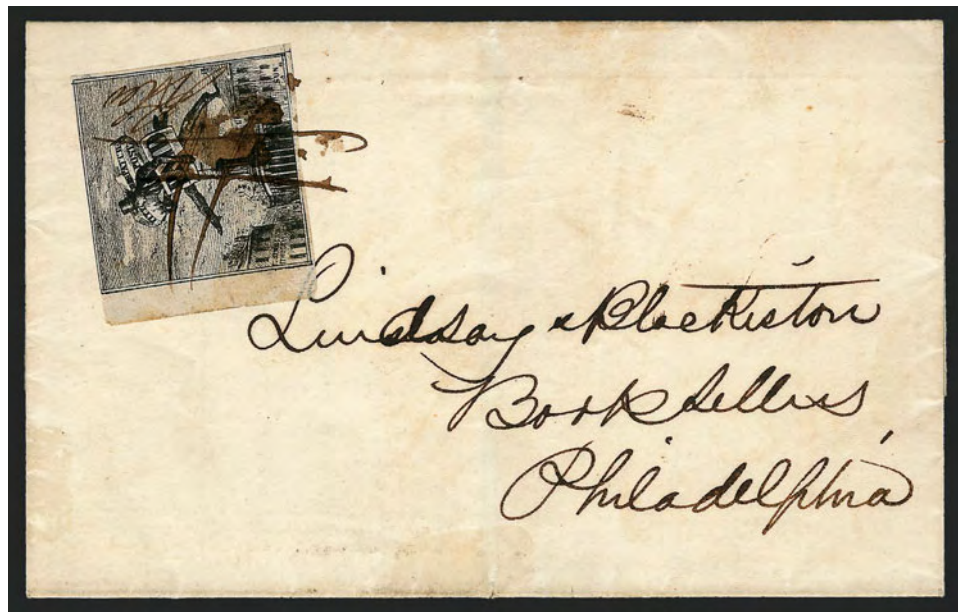 Lindsay & Blackiston
Book Sellers,
Philadelphia